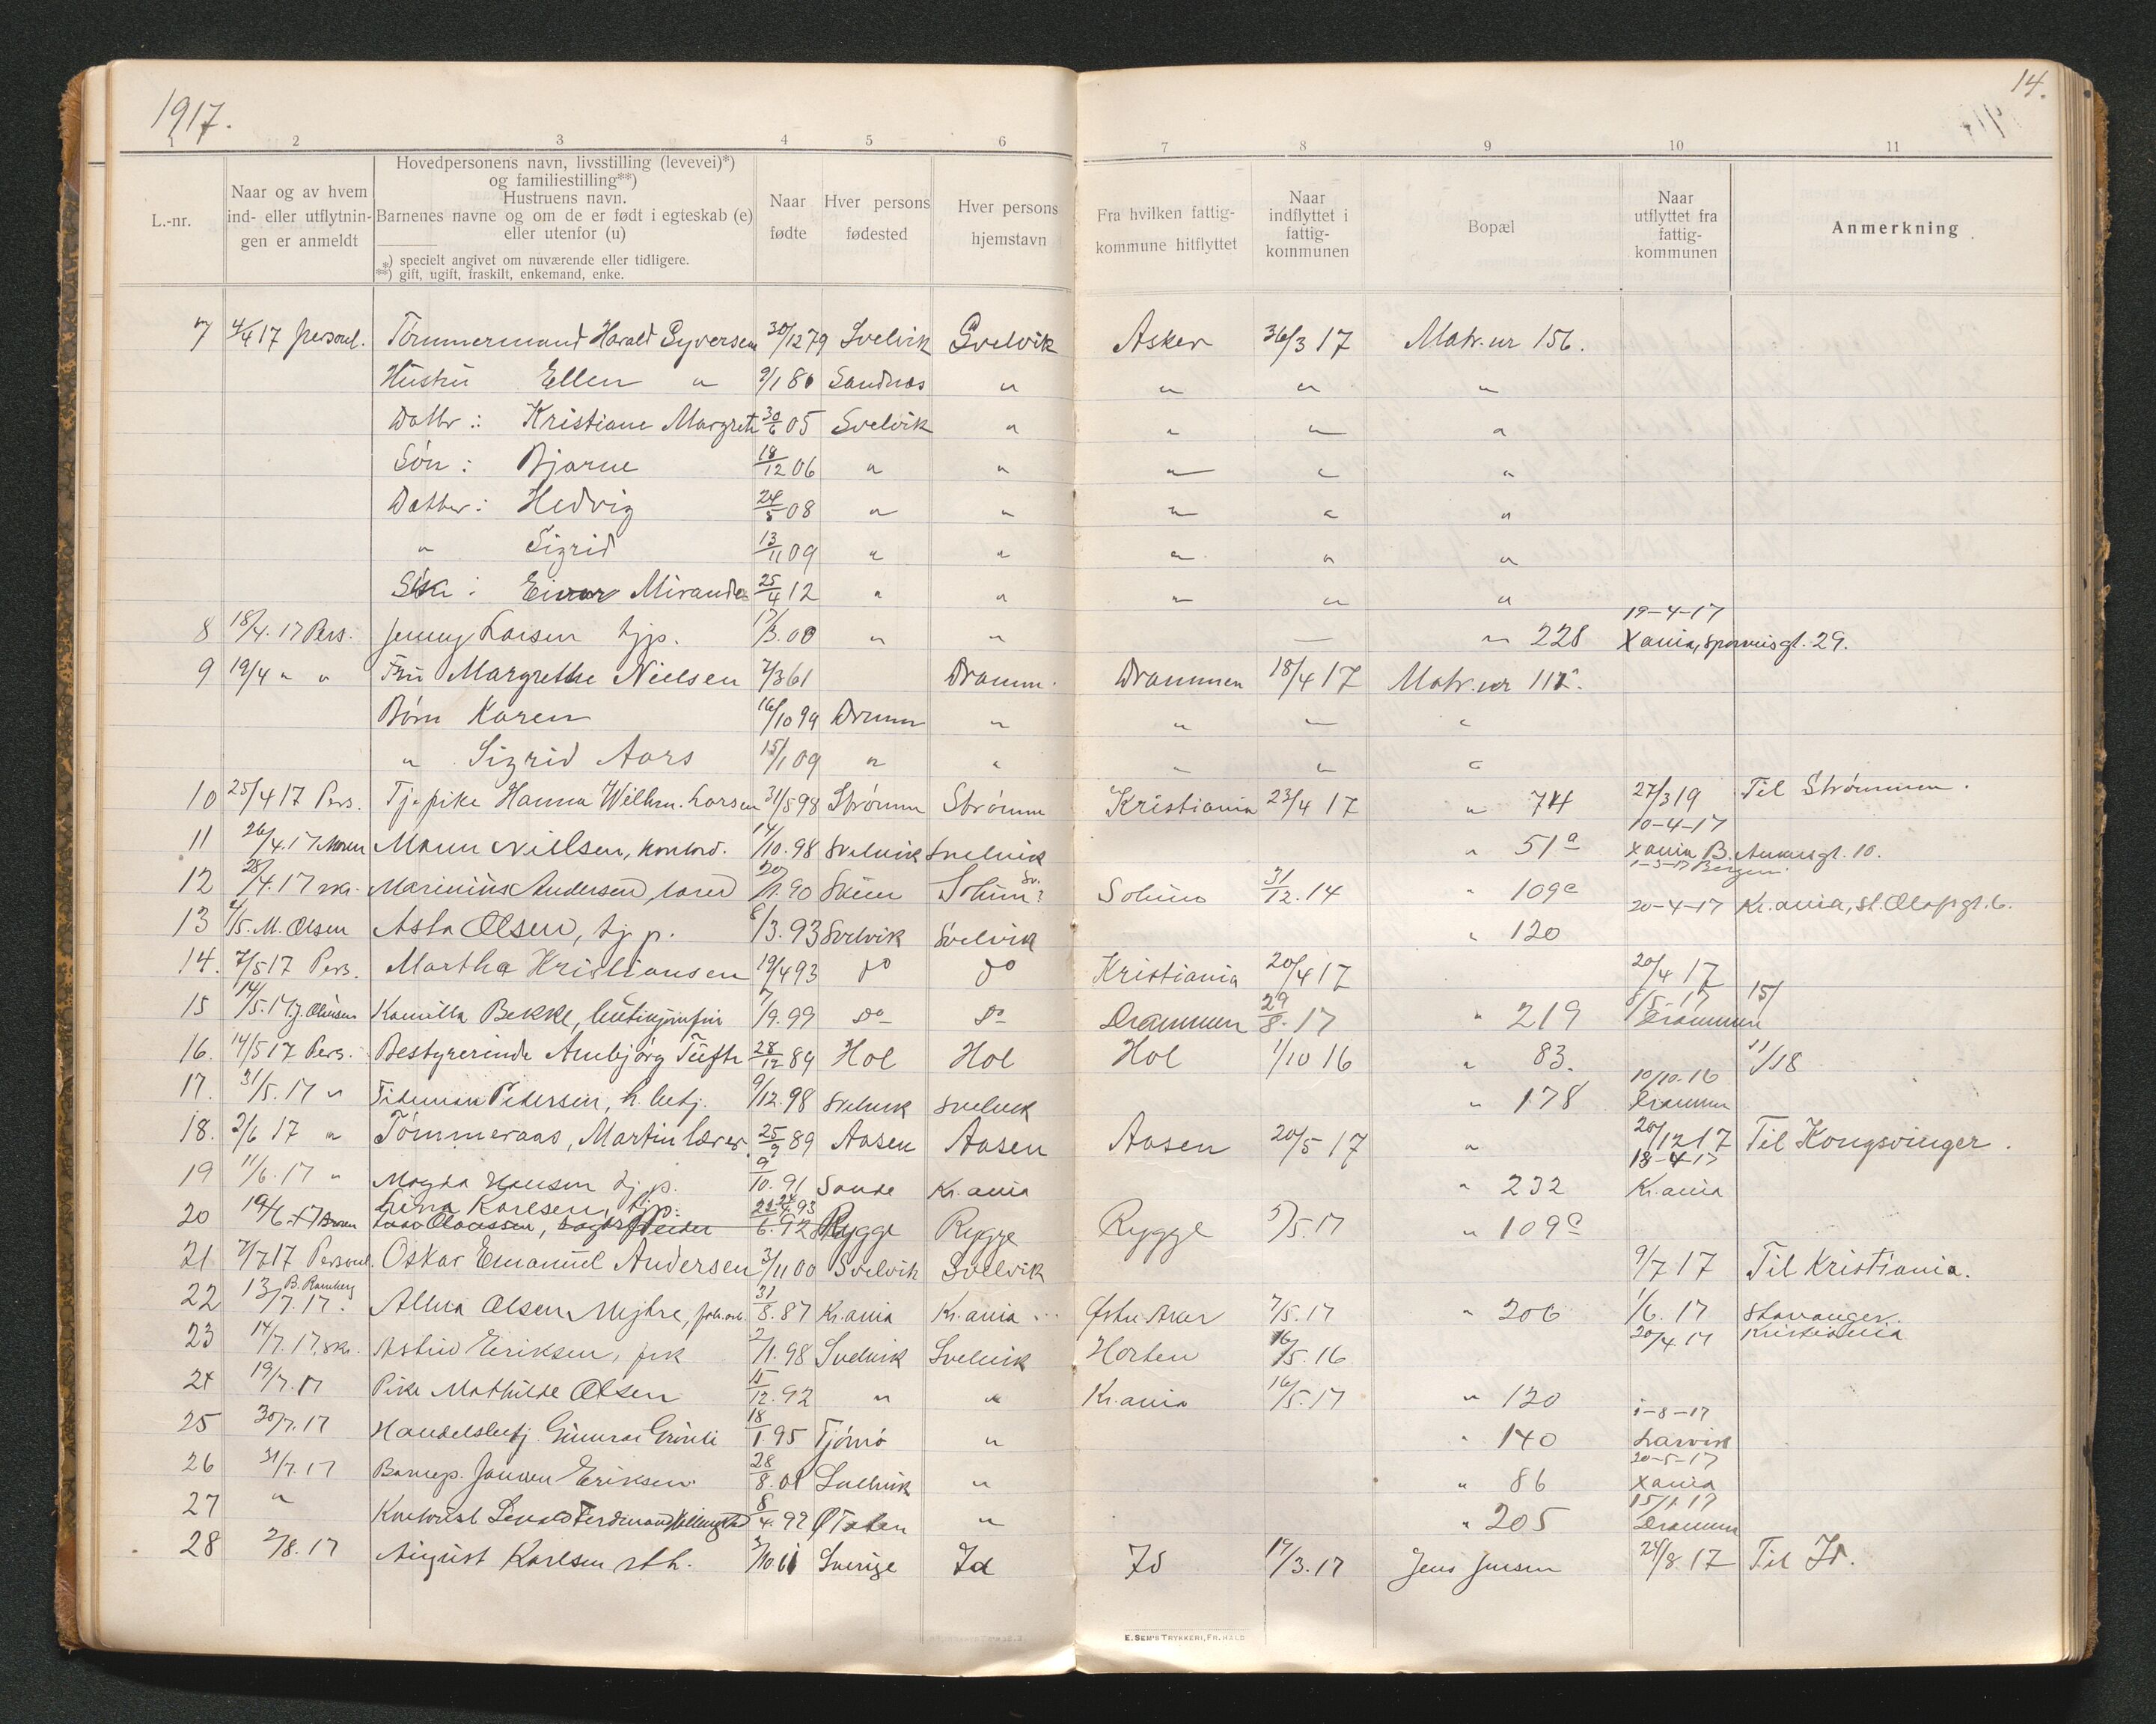 1917.
14.
1 2 3 4 5 6 7 8 9 10 11
L.-nr.
Naar og av hvem ind- eller utflytningen er anmeldt
Hovedpersonens navn, livsstilling (levevei)*)
og familiestilling**)
Hustruens navn.
Barnenes navne og om de er født i egteskab (e)
eller utenfor (u)
*) specielt angivet om nuværende eller tidligere.
**) gift, ugift, fraskilt, enkemand, enke.
Naar fødte
Hver persons fødested
Hver persons hjemstavn
Fra hvilken fattigkommune hitflyttet
Naar indflyttet i fattigkommunen
Bopæl
Naar utflyttet fra fattigkommunen
Anmerkning
7 4/4 17 personl. Tømmermand Harald Syversen 30/12 79 Svelvik Svelvik Asker 3/3 17 Matr. nr 156.
Hustru Ellen " 9/1 80 Sandnes " " " "
Datter: Kristiane Margrete 30/6 05 Svelvik " " " "
Søn: Bjarne 18/12 06 " " " " "
Datter: Hedvig 24/5 08 " " " " "
" Sigrid 13/11 09 " " " " "
Einar Miranda 25/4 12 " " " " "
19-4-17
8 18/4. 17 Pers. Jenny Larsen tjp. 17/3.00 " " — " 228 Xania, 29.
9 19/4 " " Fru Margrethe Nielsen 7/3 61 Dramm. Drammen 18/4 17 Matr. nr 111
Børn Karen 16/10 99 Dramm " " " "
" Sigrid Aars 15/1 09 " " " " "
10 25/4 17 Pers. Tj. pike Hanna Wilhm. Larsen 31/5 98 Strømm Strømm Kristiania 23/4 17 " 74 27/3 19 Til Strømmen.
10-4-17
11 26/4.17 Moren Nielsen, kontord. 14/10.98 Svelvik Svelvik " 51a Xania B. gt. 10.
12 28/4.17 Marinius Andersen, 20/1.90 Solum? Solum 31/12.14 " 109c
20-4-17 Kr.ania, St. Olafsgt. 6.
13 2/5. M. Olsen Asta Olsen, tj. p. 8/3.93 Svelvik Svelvik " 120
14. 7/5 17 Pers. Martha Kristiansen 19/4 93 do do Kristiania 20/4 17 20/4 17
15 14/5.17 J. Olausen Kamilla Bekke, butikjomfru 7/9.99 Do Do Drammen 29/8.17 " 219 8/5-17 Drammen 15/
16. 14/5 17 Pers. Bestyrerinde Ambjørg Tufte 28/12 89 Hol Hol Hol 1/10 16 " 83. 11/18
17. 31/5.17 " Tideman Pedersen, h. betj. 9/12.98 Svelvik Svelvik " 178 10/10.16 Drammen
18. 2/6 17 " Tømmeraas, Martin lærer 25/9 89 Aasen Aasen Aasen 20/5 17 " 20/12 17 Til Kongsvinger.
18-4-17
19 11/6.17 " Magda Hansen tj. p. 9/10.91 Sande Kr.ania " 232 Kr.ania
20 19/6.17 Lina Karlsen, tjp. Rygge Rygge Rygge 5/5.17 " 109c
21 7/7 17 Personl. Oskar Emanuel Andersen 3/11 00 Svelvik Svelvik 9/7 17 Til Kristiania.
22 13/7.17. B. Ramberg Alma Olsen Myhre, 31/8.87 Kr.ania Kr.ania Østre Aker 7/5.17 " 206 1/6.17 Stavanger.
23 14/7.17, Astrid Eriksen, frk 2/1.98 Svelvik Svelvik Horten 16/5.16 20/4 17 Kristiania
24 19/7.17 Pike Mathilde Olsen 12.92 " " Kr.ania 16/5.17 " 120
25 30/7.17 Handelsbetj. Gunnar 18/1.95 Tjømø " " 140 1-8-17 Larvik
26 31/7.17 Barnep. Eriksen 28/8.01 Svelvik " " 86 20-5-17 Xania
27 " Ferdinand 8/4.92 Ø Toten " " 205 Drammen
28 2/8.17 August Karlsen sth. 3/10 61 Sverige Id Id 19/3.17 Jens Jensen 24/8.17 Til Id.
E. SEM'S TRYKKERI, FR.HALD